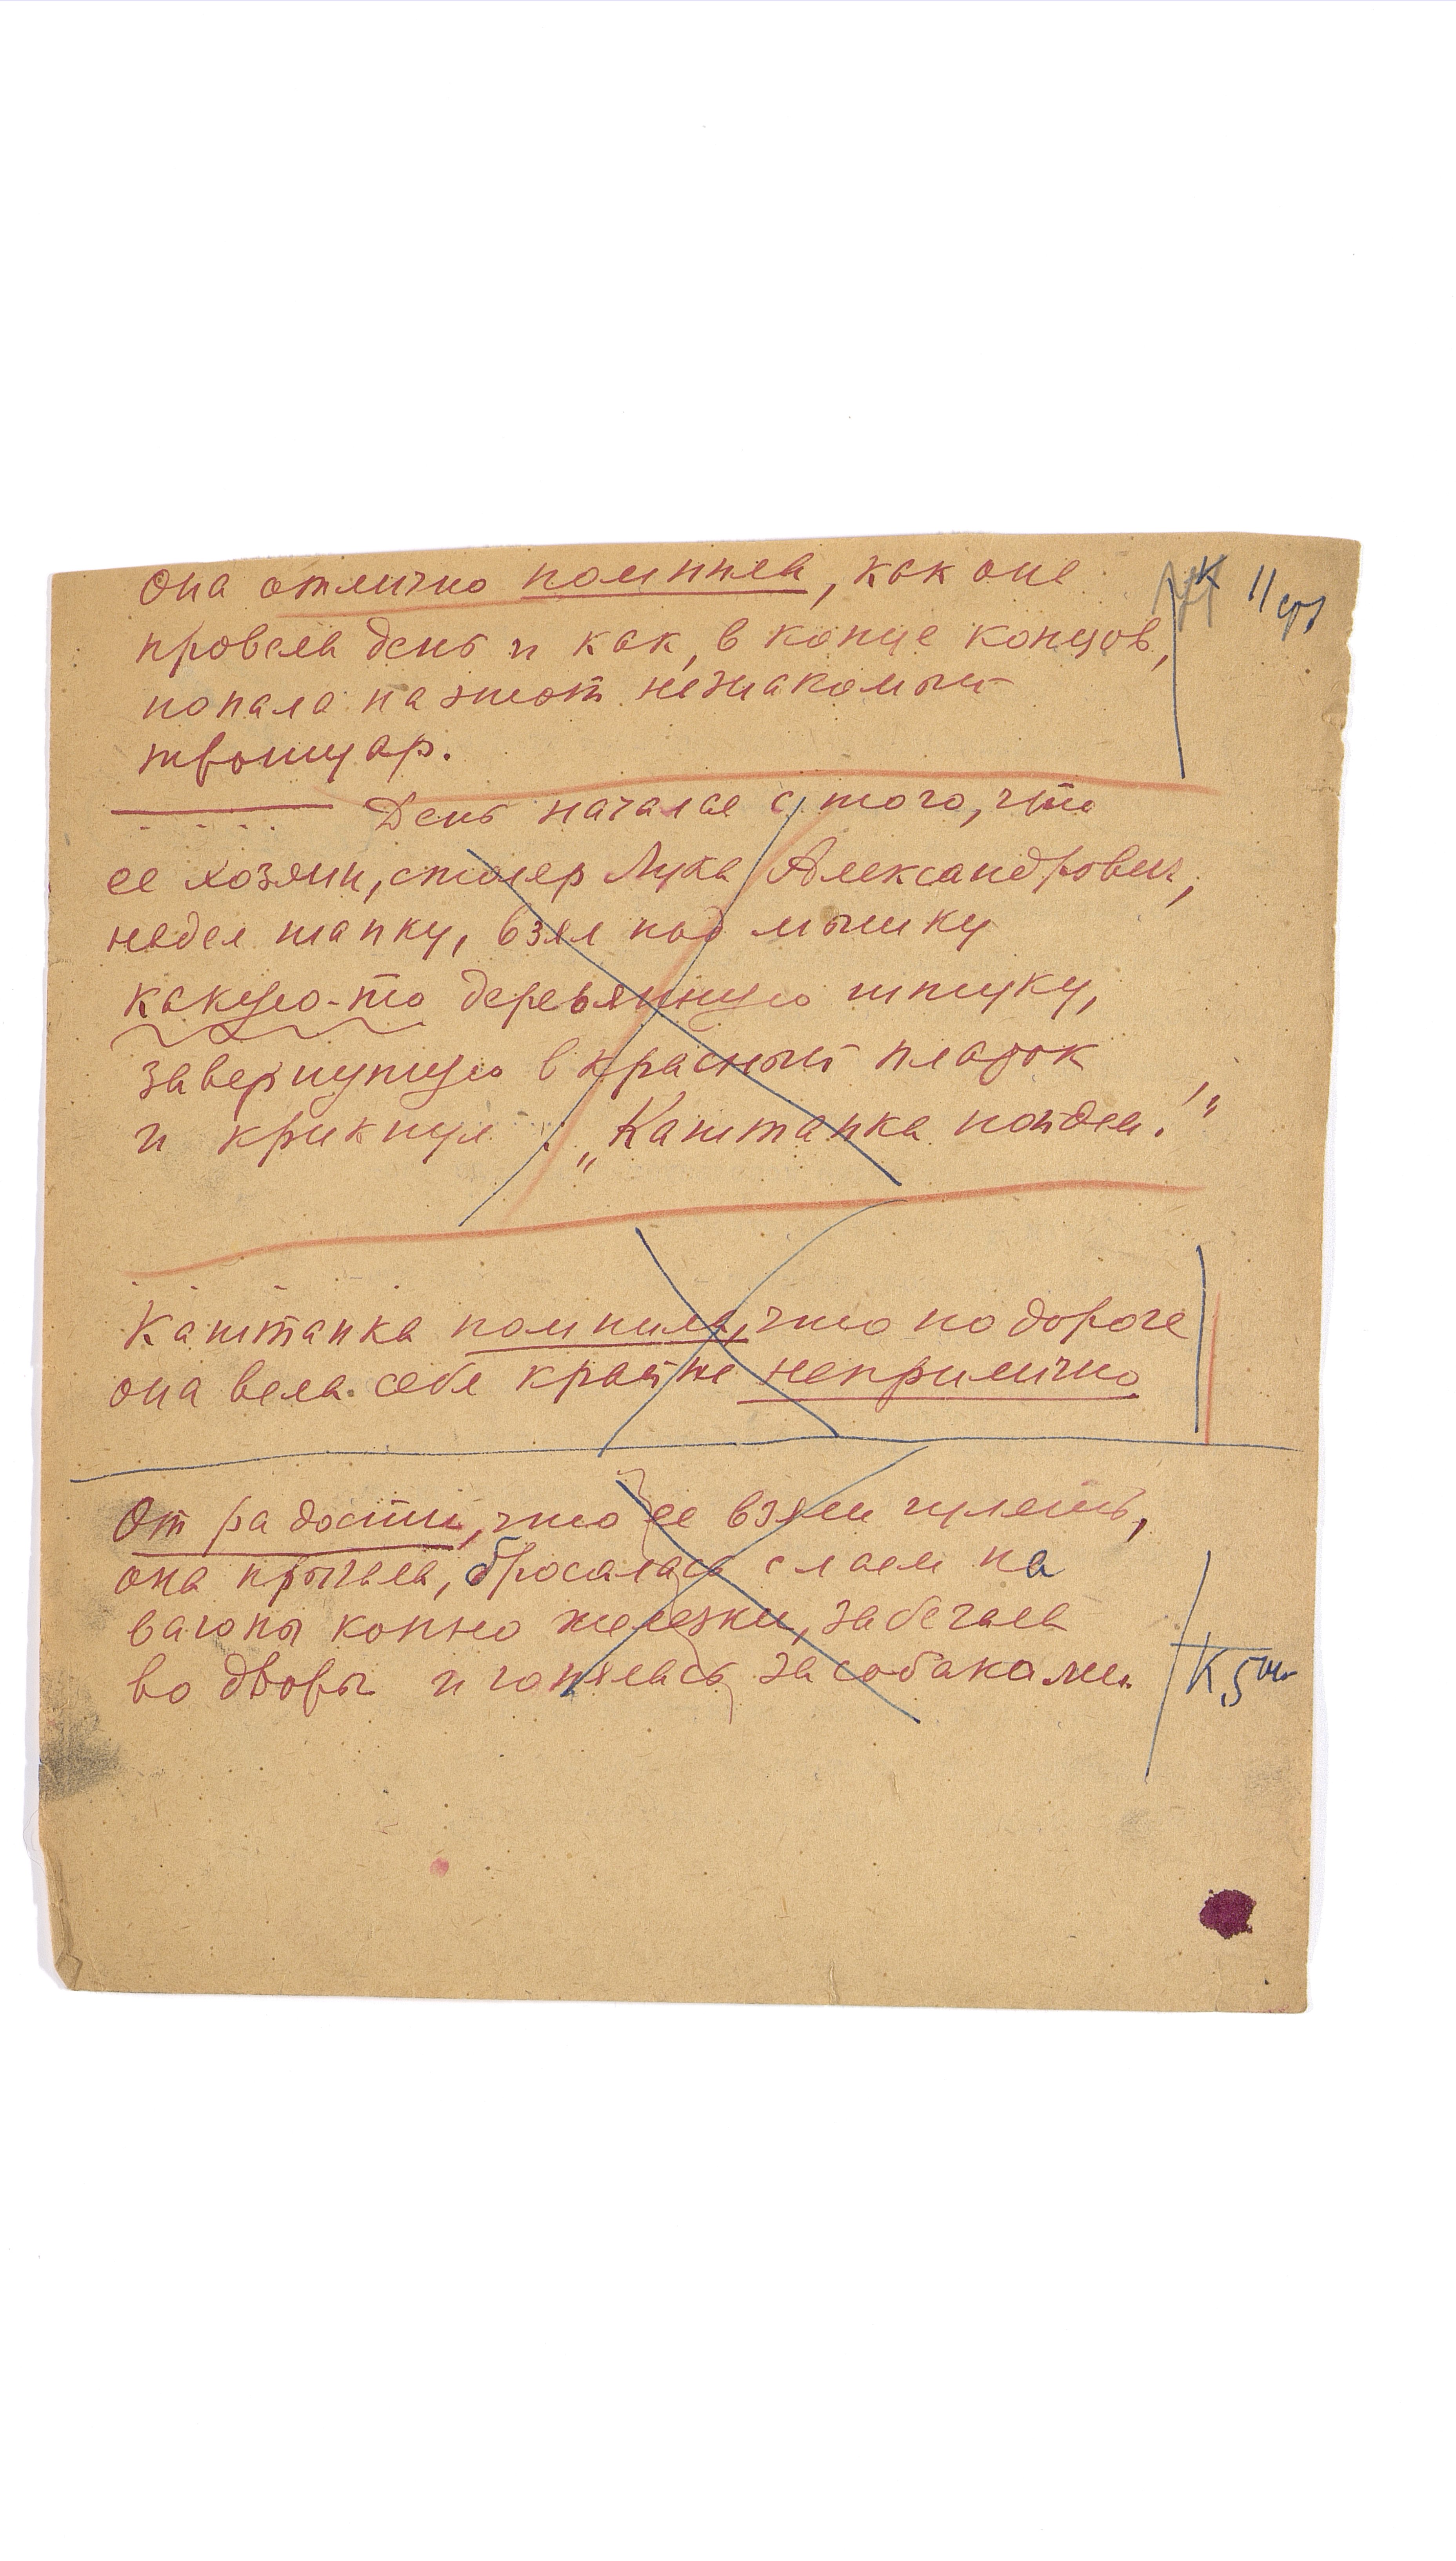 Она отлично помнила, как она
провела день и как, в конце концов,
попала на этот незнакомый
тротуар.
День начался с того, что
ее хозяин, столяр Лука Александрович,
надел шапку, взял под мышку
какую-то деревянную штуку,
завернутую в красный платок
и крикнул: „Каштанка пойдем!"
Каштанка помнила, что по дороге
она вела себя крайне неприлично
От радости, что ее взяли гулять,
она прыгала, бросалась с лаем на
вагоны конно железки, забегала
во дворы и гонялась за собаками.
К 5